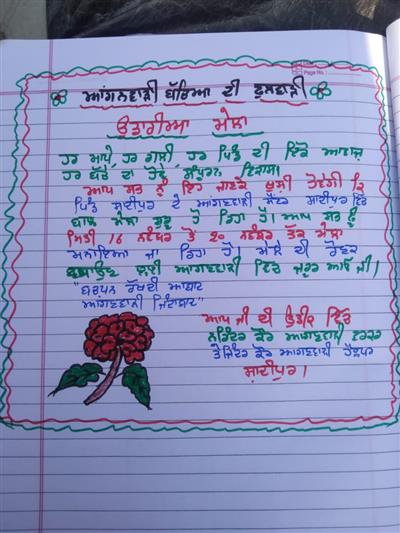 ਆਂਗਨਵਾੜੀ ਬੱਚਿਆ ਦੀ ਫੁਲਵਾੜੀ
ਉਤਾਰੀਆ ਮੇਲਾ
ਹਰ ਮਾਪੇ, ਹਰ ਗਲੀ, ਹਰ ਪਿੰਡ ਦੀ ਇੱਕੋ ਆਵਾਜ਼
ਹਰ ਬੱਚੇ ਦਾ ਹੋਵੇ ਸੰਪੂਰਨ ਵਿਕਾਸ।
ਆਪ ਸਭ ਨੂੰ ਇਹ ਜਾਣਕੇ ਖੁਸ਼ੀ ਹੋਵੇਗੀ ਕਿ
ਪਿੰਡ ਸ਼ਾਦੀਪੁਰ ਦੇ ਆਂਗਣਵਾੜੀ ਸੈਂਟਰ ਸ਼ਾਦੀਪੁਰ ਵਿੱਚ
ਬਾਲ ਮੇਲਾ ਸ਼ੁਰੂ ਹੋ ਰਿਹਾ ਹੈ। ਆਪ ਸਭ ਨੂੰ
ਮਿਤੀ 16 ਨਵੰਬਰ ਤੋਂ 20 ਨਵੰਬਰ ਤੱਕ ਮੇਲਾ
ਮਨਾਇਆ ਜਾ ਰਿਹਾ ਹੈ। ਮੇਲੇ ਦੀ ਰੌਣਕ
ਵਧਾਉਣ ਲਈ ਆਂਗਣਵਾੜੀ ਵਿੱਚ ਜਰੂਰ ਆਓ ਜੀ।
"ਬਚਪਨ ਰੱਖਦੀ ਆਬਾਦ
ਆਂਗਣਵਾੜੀ ਜਿੰਦਾਬਾਦ"
ਆਪ ਜੀ ਦੀ ਉਡੀਕ ਵਿੱਚ
ਨਰਿੰਦਰ ਕੌਰ ਆਂਗਣਵਾੜੀ ਵਰਕਰ
ਤੇਜਿੰਦਰ ਕੌਰ ਆਂਗਣਵਾੜੀ ਹੈਲਪਰ
ਸ਼ਾਦੀਪੁਰ।